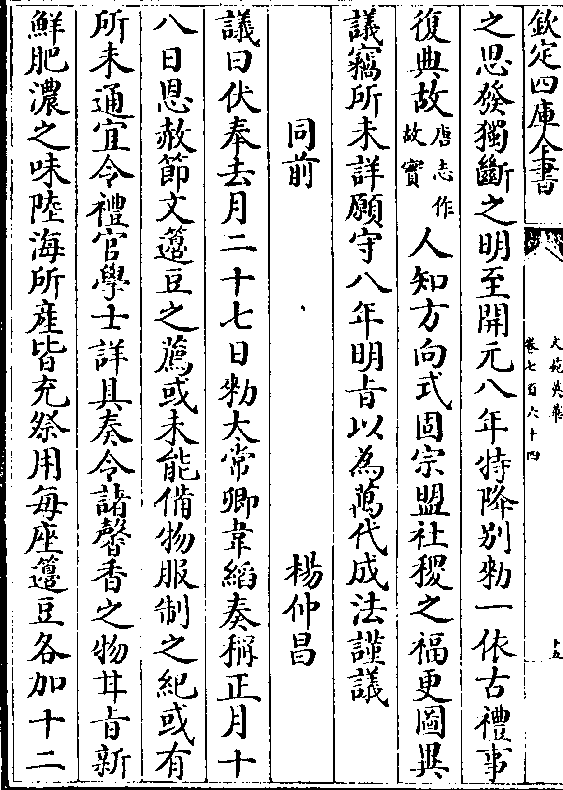 欽定四庫全書
文苑英華
卷七百六十四
十五
之思發獨斷之明至開元八年特降别勅一依古禮事
復典故唐志作故實人知方向式固宗盟社稷之福更圖異
議竊所未詳願守八年明㫖以為萬代成法謹議
同前 楊仲昌
議曰伏奉去月二十七日勅太常卿韋縚奏稱正月十
八日恩赦節文籩豆之薦或未能備物服制之紀或有
所未通宜令禮官學士詳具奏令諸馨香之物甘㫖新
鮮肥濃之味陸海所產皆充祭用每座籩豆各加十二